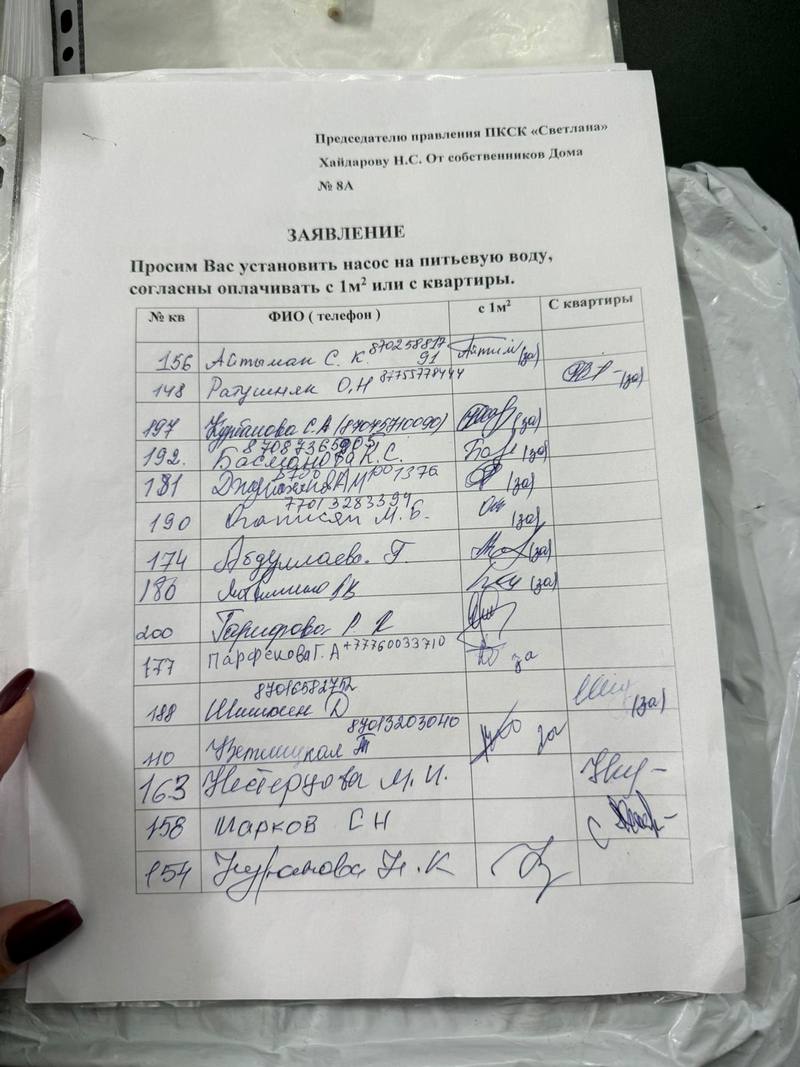 Председателю правления ПКСК «Светлана»
Хайдарову Н.С. От собственников Дома
№ 8А
ЗАЯВЛЕНИЕ
Просим Вас установить насос на питьевую воду,
согласны оплачивать с 1м² или с квартиры.
№ кв ФИО ( телефон ) с 1м² С квартиры
156 Айтыман С. К. 87025881791 (за)
148 Ратушняк О.Н 87755778444 (за)
197 Курбанова С.А (87045710090) (за)
192. Басманова К.С. (за)
181 (за)
190 77013283394 М. Б. (за)
174 Абдуллаева. Г. (за)
180 (за)
200 Гарифрова Р. Р
177 ПАРФЕНОВА Г. А +77760033710 за
188 87016582752 (за)
110 Цветлицкая Т 87013203040 за
163 Нестерцова М. И.
158 МАРКОВ С Н
154 Нурланова Н. К